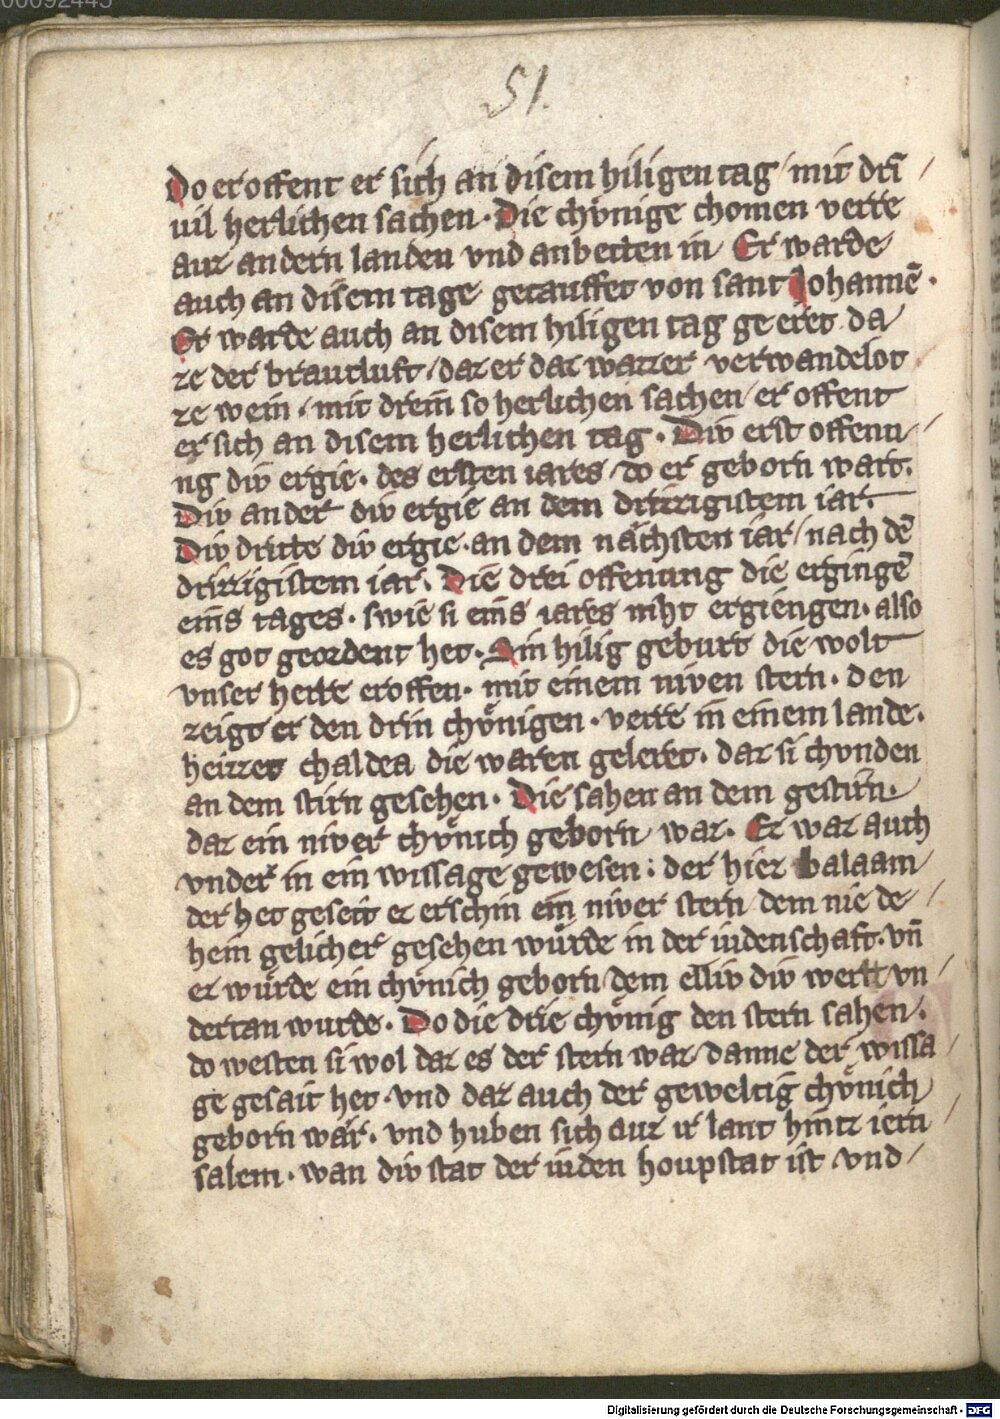 00092445
51.
Do eroffent er sich an disem hiligen tag / mit drī /
uil herlichen sachen · Die chv̊nige chomen verre
auz andern landen vnd anbetten in / Er warde /
auch an disem tage getauffet von sant Johannē ·
Er warde auch an disem hiligen tag geeret da /
ze der brautluft / daz er daz wazzer verwandelot /
ze wein / mit dreīn so herlichen sachen / er offent
er sich an disem herlichen tag · Div erst offenu /
ng div ergie · des ersten iares / do er geborn wart ·
Div ander div ergie an dem drizzigistem iar ·
Div dritte div ergie · an dem nächsten iar / nach dē
drizzigistem iar · Die drei offenung die ergingē
eins tages · swie si eins iares niht ergiengen · also
es got geordent het · Sin hilig geburt die wolt
vnser herre eroffen · mit einem niven stern · den
zeigt er den drin chv̊nigen · verre in einem lande ·
heizzet chaldea die waren geleret · daz si chvnden
an dem stirn gesehen · Die sahen an dem gestirn ·
daz ein niver chv̊nich geborn war · Ez waz auch
vnder in ein wissage gewesen : der hiez balaam /
der het geseit ez erschin ein niver stern / dem nie de /
hein gelicher gesehen wůrde in der iudenschaft · vn̄
ez wůrde ein chv̊nich geborn / dem elliv div werlt vn /
dertan wurde · Do die drie chv̊nig den stern sahen / ·
do westen si wol daz es der stern waz / danne der wissa /
ge gesait het · vnd daz auch der geweltig chv̊nich
geborn wär · vnd huben sich auz ir lant hintz ieru /
salem · wan div stat der iuden houpstat ist · vnd /
Digitalisierung gefördert durch die Deutsche Forschungsgemeinschaft - DFG